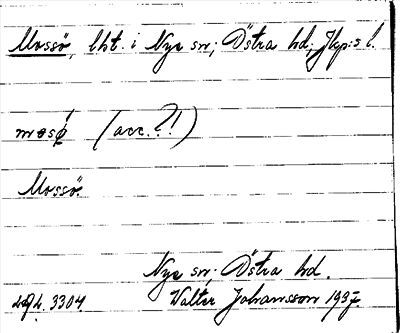 Mossö, lht. i Nye sn; Östra hd; Jkp:s l.
(acc.?!)
Mossö.
Nye sn; Östra hd.
3304. Walter Johansson 1937.